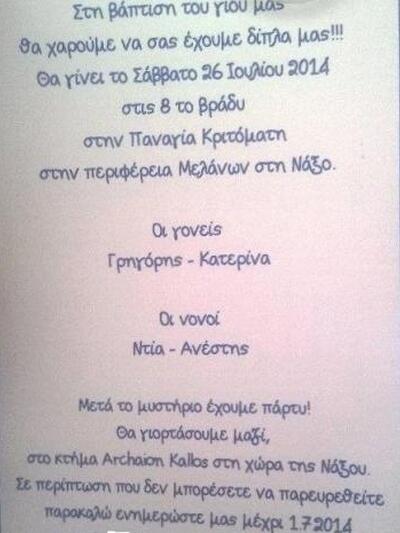 Στη βάπτιση του γιου μας
θα χαρούμε να σας έχουμε δίπλα μας!!!
Θα γίνει το Σάββατο 26 Ιουλίου 2014
στις 8 το βράδυ
στην Παναγία Κριτόματη
στην περιφέρεια Μελάνων στη Νάξο.
Οι γονείς
Γρηγόρης - Κατερίνα
Οι νονοί
Ντία - Ανέστης
Μετά το μυστήριο έχουμε πάρτυ!
Θα γιορτάσουμε μαζί,
στο κτήμα Archaion Kallos στη χώρα της Νάξου.
Σε περίπτωση που δεν μπορέσετε να παρευρεθείτε
παρακαλώ ενημερώστε μας μέχρι 1.7.2014